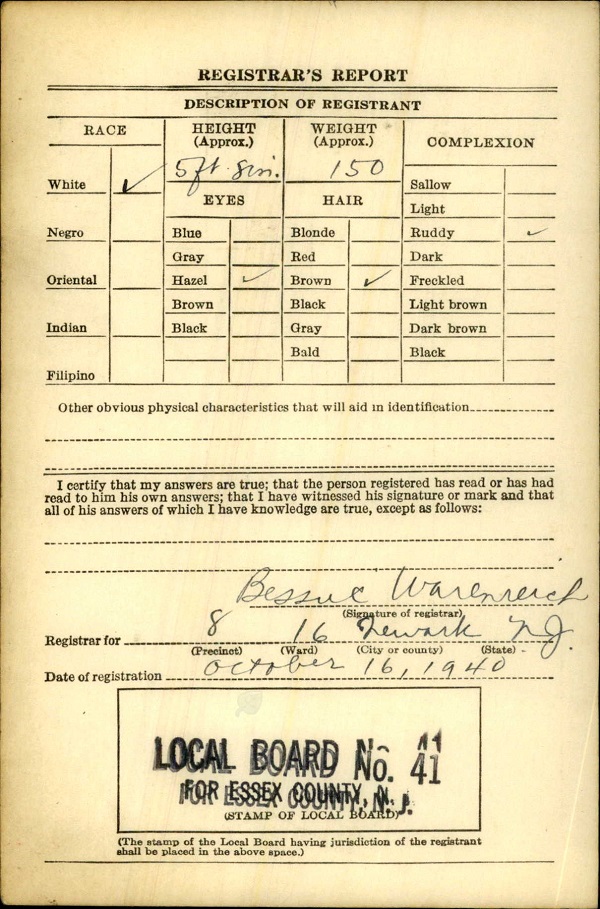 REGISTRAR'S REPORT
DESCRIPTION OF REGISTRANT
RACE
HEIGHT
(Approx.)
WEIGHT
(Approx.)
COMPLEXION
5 ft. 8 in.
150
White ✓
EYES
HAIR
Sallow
Light
Negro
Blue
Blonde
Ruddy ✓
Gray
Red
Dark
Oriental
Hazel ✓
Brown ✓
Freckled
Brown
Black
Light brown
Indian
Black
Gray
Dark brown
Bald
Black
Filipino
Other obvious physical characteristics that will aid in identification
I certify that my answers are true; that the person registered has read or has had
read to him his own answers; that I have witnessed his signature or mark and that
all of his answers of which I have knowledge are true, except as follows:
(Signature of registrar)
Registrar for 8 16 Newark N.J.
(Precinct) (Ward) (City or county) (State)
Date of registration October 16, 1940
LOCAL BOARD No. 41
FOR ESSEX COUNTY, N.J.
(STAMP OF LOCAL BOARD)
(The stamp of the Local Board having jurisdiction of the registrant
shall be placed in the above space.)